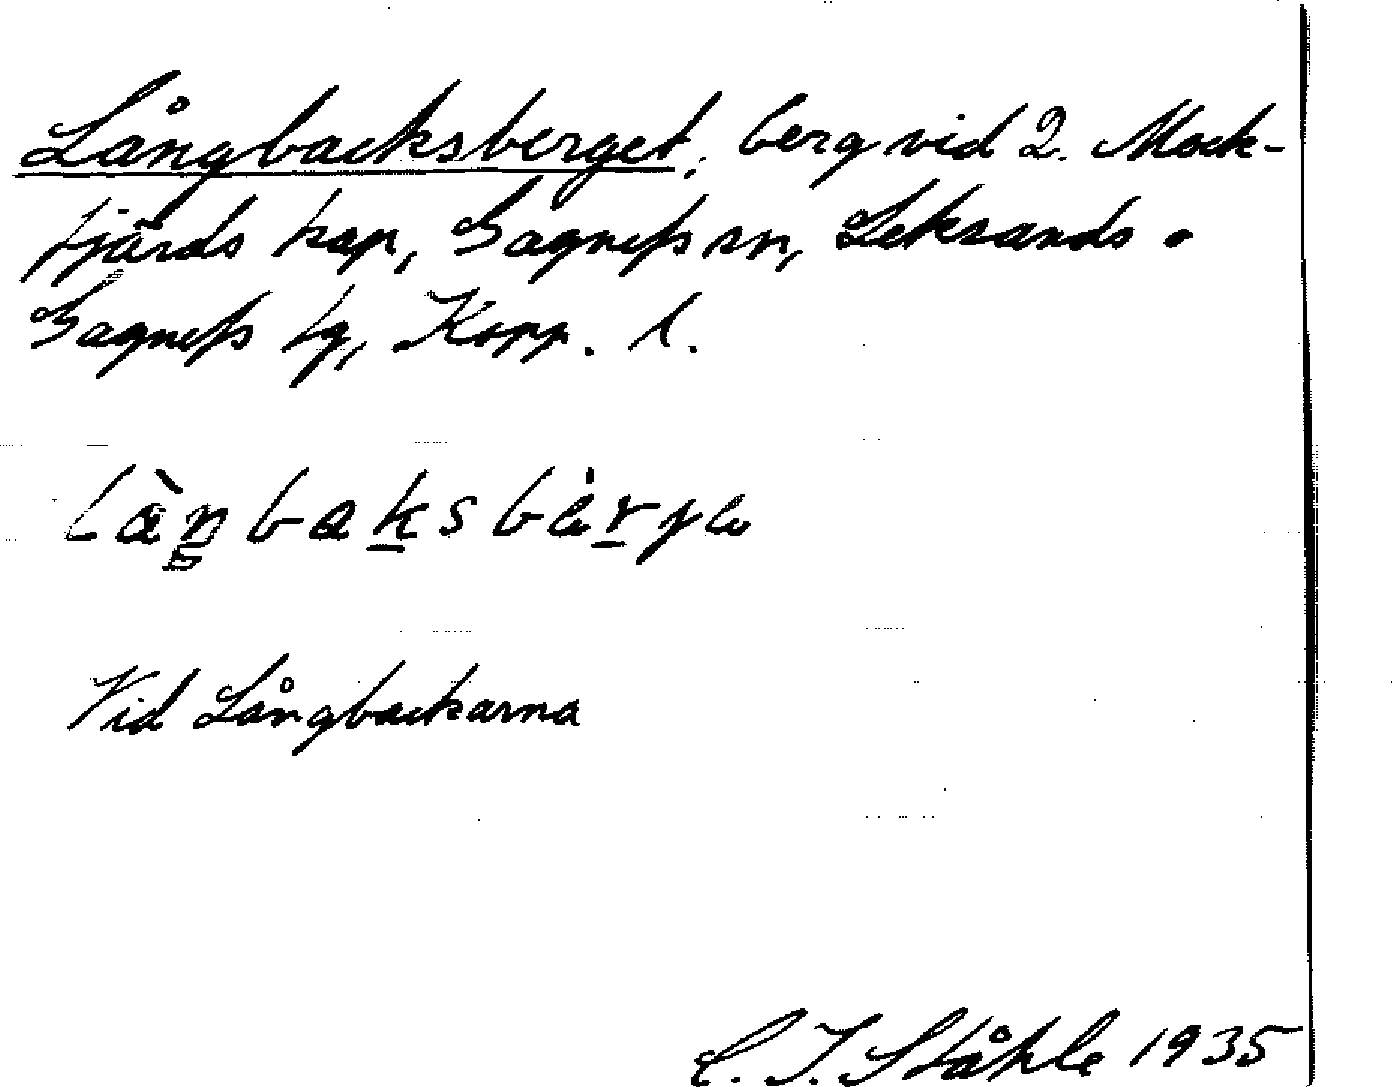 Långbacksberget; berg vid 2. Mock-
fjärds kap, Gagnefs sn, Leksands o
Gagnefs tg, Kopp. l.
Vid Långbackarna
C. I. Ståhle 1935